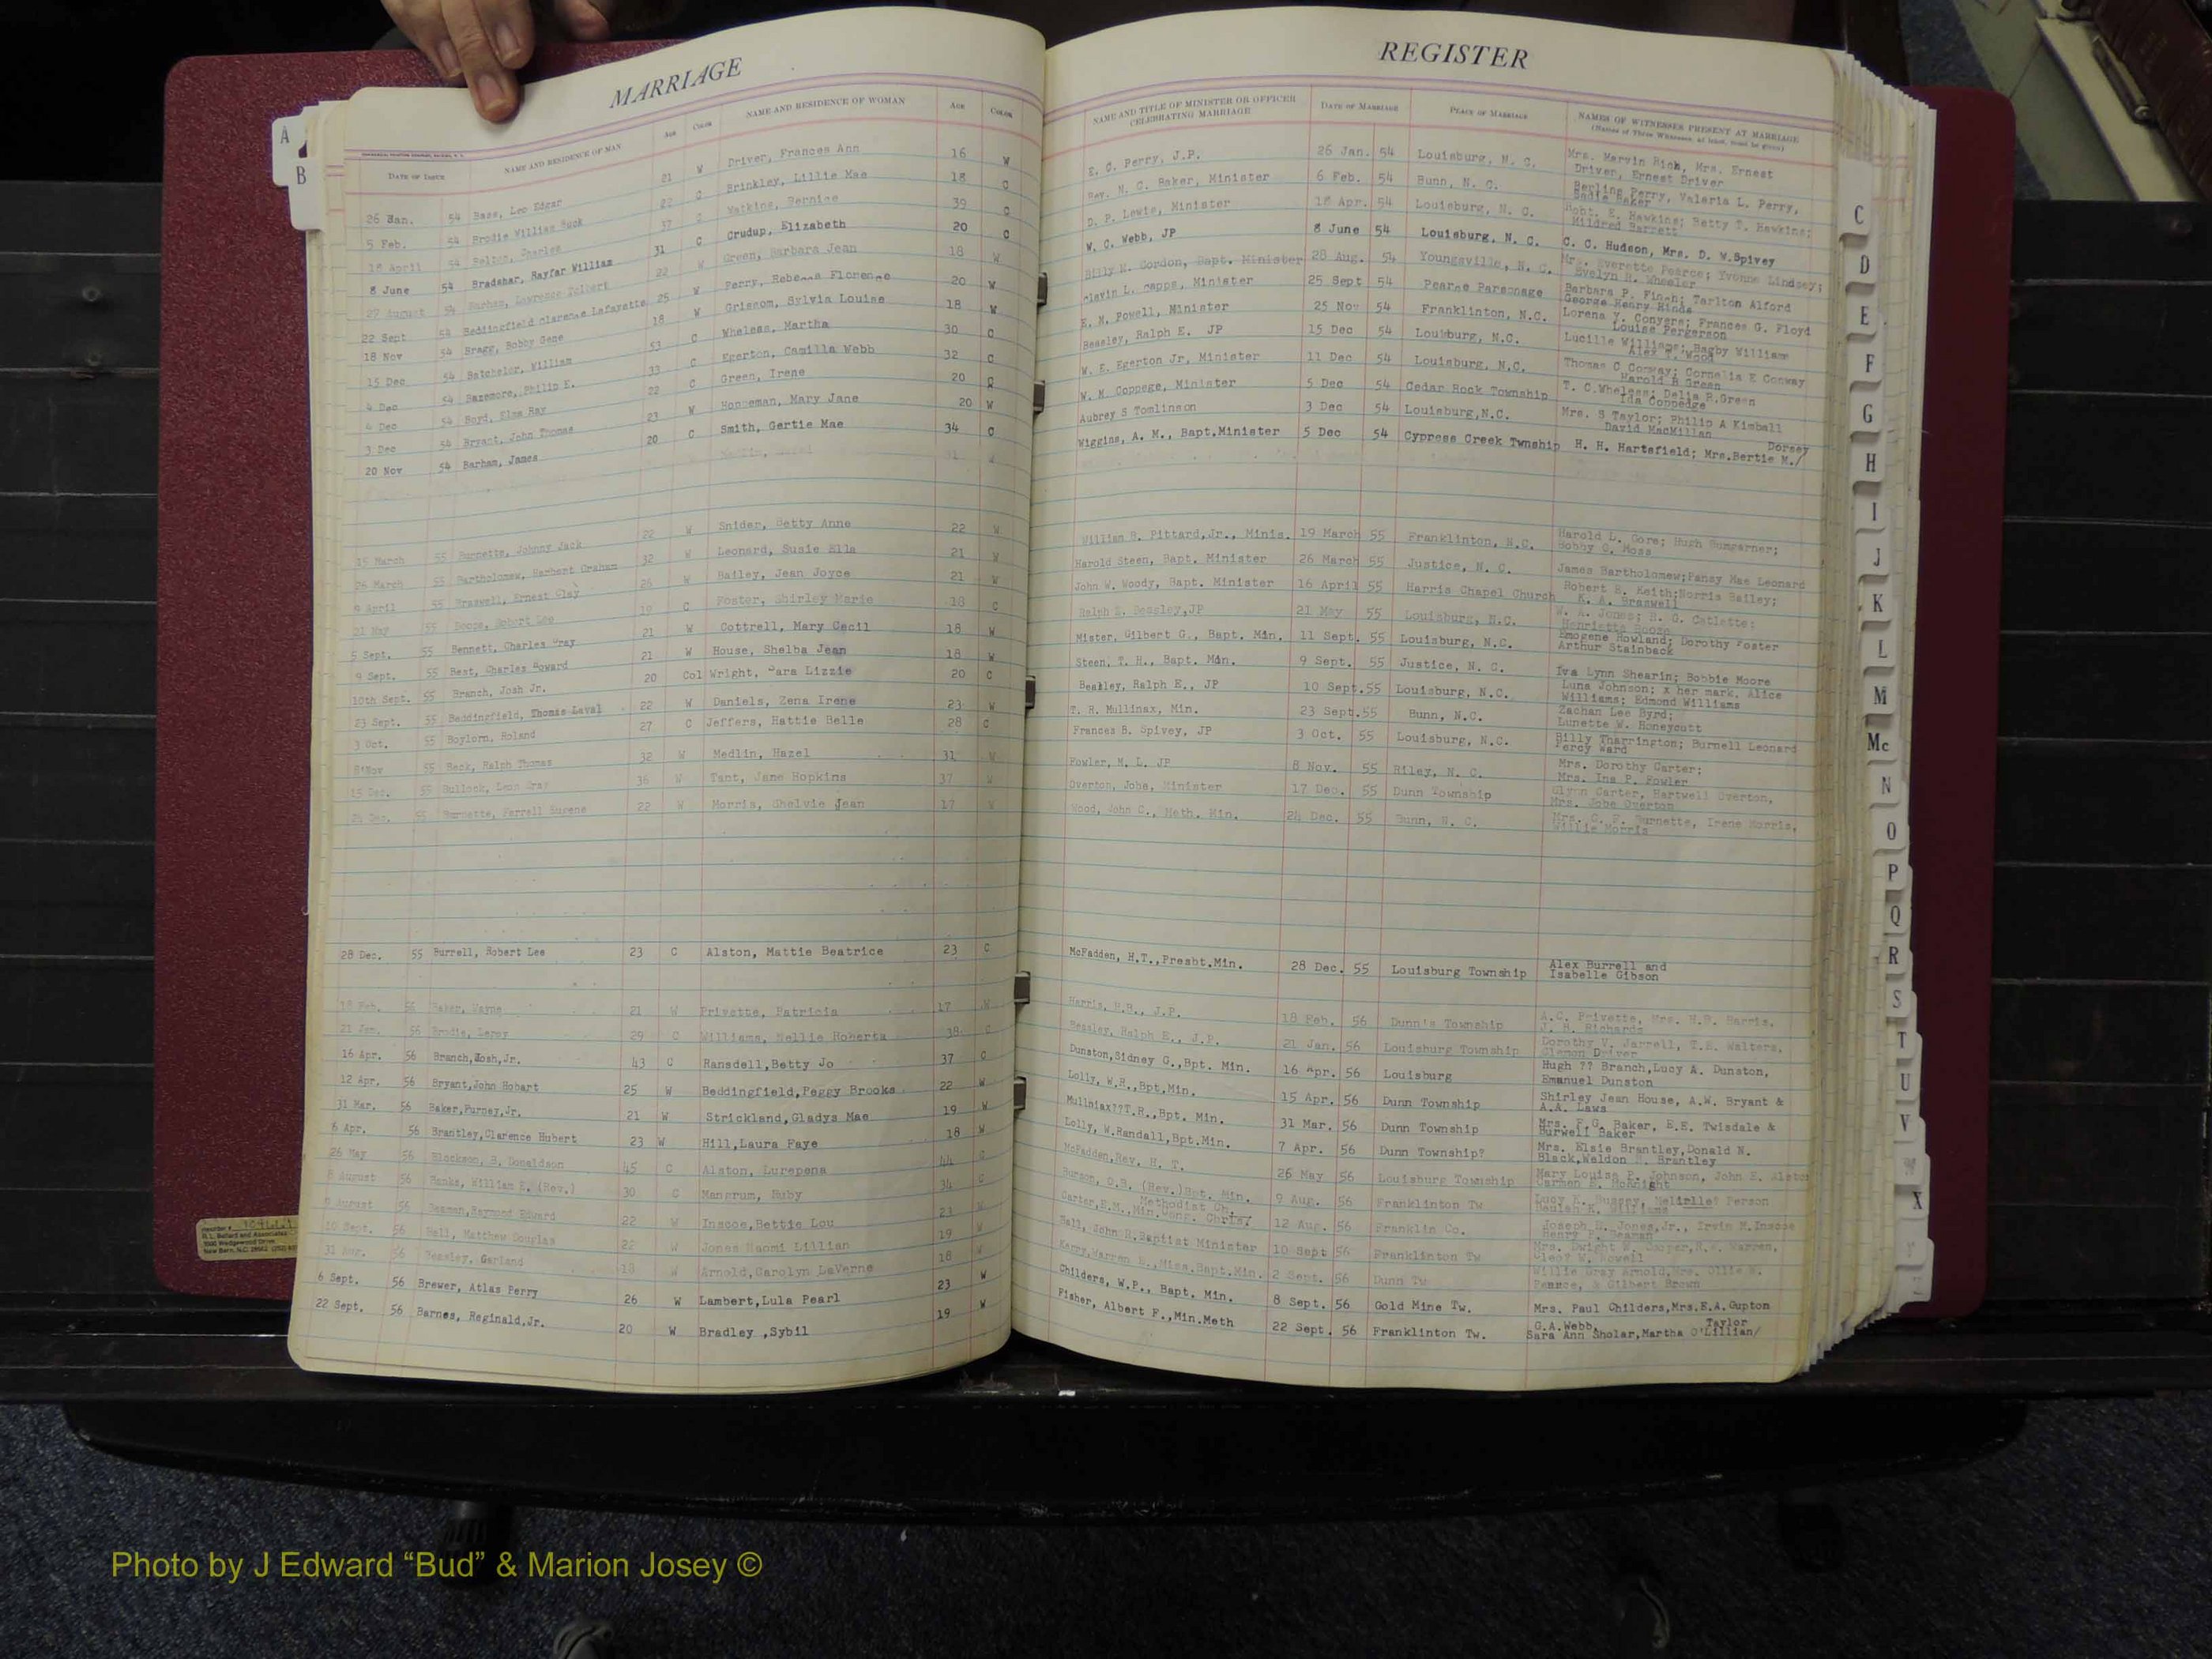 MARRIAGE
REGISTER
DATE OF ISSUE NAME AND RESIDENCE OF MAN AGE COLOR NAME AND RESIDENCE OF WOMAN AGE COLOR NAME AND TITLE OF MINISTER OR OFFICER CELEBRATING MARRIAGE DATE OF MARRIAGE PLACE OF MARRIAGE NAMES OF WITNESSES PRESENT AT MARRIAGE
26 Jan. 54 Bass, Leo Edgar 21 W Driver, Frances Ann 16 W E. C. Perry, J.P. 26 Jan. 54 Louisburg, N. C. Mrs. Marvin Rich, Mrs. Ernest
Driver, Ernest Driver
5 Feb. 54 Brodie William Buck 22 C Brinkley, Lillie Mae 18 C Rev. N. C. Baker, Minister 6 Feb. 54 Bunn, N. C. Berline Perry, Valeria L. Perry,
Sadie Baker
18 April 54 37 C Watkins, Bernice 39 C D. P. Lewis, Minister 18 Apr. 54 Louisburg, N. C. Robt. E. Hawkins; Betty T. Hawkins;
Mildred Barrett
8 June 54 Bradshar, Rayfar William 31 C Crudup, Elizabeth 20 C W. C. Webb, JP 8 June 54 Louisburg, N. C. C. C. Hudson, Mrs. D. W.Spivey
27 August 54 22 W Green, Barbara Jean 18 W Billy M. Gordon, Bapt. Minister 28 Aug. 54 Youngsville, N. C. Mrs. Everette Pearce; Yvonne Lindsey;
Evelyn H. Wheeler
22 Sept 54 Beddingfield Clarence Lafayette 25 W Perry, Rebecca Florence 20 W Capps, Minister 25 Sept 54 Pearce Parsonage Barbara P. Finch; Tarlton Alford
George Henry Hinds
18 Nov 54 Bragg, Bobby Gene 18 W Griscom, Sylvia Louise 18 W E. M. Powell, Minister 25 Nov 54 Franklinton, N.C. Lorena Y. Conyers; Frances G. Floyd
Louise Fergerson
15 Dec 54 Batchelor, William 53 C Wheless, Martha 30 C Beasley, Ralph E. JP 15 Dec 54 Louisburg, N.C. Lucille Williams; Bagby William
Alex T. Wood
4 Dec 54 Bazemore, Philip E. 33 C Egerton, Camilla Webb 32 C W. E. Egerton Jr, Minister 11 Dec 54 Louisburg, N.C. Thomas C Conway; Cornelia E Conway
Harold B Green
4 Dec 54 Boyd, Elma Ray 22 C Green, Irene 20 C W. M. Coppege, Minister 5 Dec 54 Cedar Rock Township T. C.Wheless; Delia R.Green
Ida Coppedge
3 Dec 54 Bryant, John Thomas 23 W Honneman, Mary Jane 20 W Aubrey S Tomlinson 3 Dec 54 Louisburg,N.C. Mrs. S Taylor; Philip A Kimball
David MacMillan
20 Nov 54 Barham, James 20 C Smith, Gertie Mae 34 C Wiggins, A. M., Bapt.Minister 5 Dec 54 Cypress Creek Twnship H. H. Hartsfield; Mrs.Bertie M./
Dorsey
15 March 55 Burnette, Johnny Jack 22 W Snider, Betty Anne 22 W William B. Pittard,Jr., Minis. 19 March 55 Franklinton, N.C. Harold L. Gore; Hugh Bumgarner;
Bobby C. Moss
26 March 55 Bartholomew, Herbert Graham 32 W Leonard, Susie Ella 21 W Harold Steen, Bapt. Minister 26 March 55 Justice, N. C. James Bartholomew;Pansy Mae Leonard
9 April 55 Braswell, Ernest Clay 26 W Bailey, Jean Joyce 21 W John W. Woody, Bapt. Minister 16 April 55 Harris Chapel Church Robert E. Keith;Norris Bailey;
K. A. Braswell
21 May 55 Boone, Robert Lee 19 C Foster, Shirley Marie 18 C Ralph E. Beasley,JP 21 May 55 Louisburg, N.C. W. A. Jones; H. G. Catlette;
Henrietta Boone
5 Sept. 55 Bennett, Charles Gray 21 W Cottrell, Mary Cecil 18 W Mister, Gilbert G., Bapt. Min. 11 Sept. 55 Louisburg, N.C. Emogene Rowland; Dorothy Foster
Arthur Stainback
9 Sept. 55 Best, Charles Howard 21 W House, Shelba Jean 18 W Steen, T. H., Bapt. Min. 9 Sept. 55 Justice, N. C. Iva Lynn Shearin; Bobbie Moore
10th Sept. 55 Branch, Josh Jr. 20 Col Wright, Sara Lizzie 20 C Beasley, Ralph E., JP 10 Sept.55 Louisburg, N.C. Luna Johnson; x her mark, Alice
Williams; Edmond Williams
23 Sept. 55 Beddingfield, Thomas Laval 22 W Daniels, Zena Irene 23 W T. R. Mullinax, Min. 23 Sept.55 Bunn, N.C. Zachan Lee Byrd;
Lunette W. Honeycutt
3 Oct. 55 Boylorn, Roland 27 C Jeffers, Hattie Belle 28 C Frances B. Spivey, JP 3 Oct. 55 Louisburg, N.C. Billy Tharrington; Burnell Leonard
Percy Ward
8 Nov 55 Beck, Ralph Thomas 32 W Medlin, Hazel 31 W Fowler, M. L. JP 8 Nov. 55 Riley, N. C. Mrs. Dorothy Carter;
Mrs. Ina P. Fowler
15 Dec. 55 Bullock, Leon Gray 36 W Tant, Jane Hopkins 37 W Overton, Jobe, Minister 17 Dec. 55 Dunn Township Glynn Carter, Hartwell Overton,
Mrs. Jobe Overton
24 Dec. 55 Burnette, Farrell Eugene 22 W Morris, Shelvie Jean 17 W Wood, John C., Meth. Min. 24 Dec. 55 Bunn, N. C. Mrs. C. F. Burnette, Irene Morris,
Willie Morris
28 Dec. 55 Burrell, Robert Lee 23 C Alston, Mattie Beatrice 23 C McFadden, H.T.,Presbt.Min. 28 Dec. 55 Louisburg Township Alex Burrell and
Isabelle Gibson
18 Feb. 56 Baker, Wayne 21 W Privette, Patricia 17 W Harris, H.B., J.P. 18 Feb. 56 Dunn's Township A.C. Privette, Mrs. H.B. Harris,
J. H. Richards
21 Jan. 56 Brodie, Leroy 29 C Williams, Nellie Roberta 38 C Beasley, Ralph E., J.P. 21 Jan. 56 Louisburg Township Dorothy V. Jarrell, T.H. Walters,
Clemon Driver
16 Apr. 56 Branch,Josh,Jr. 43 C Ransdell,Betty Jo 37 C Dunston,Sidney G.,Bpt. Min. 16 Apr. 56 Louisburg Hugh ?? Branch,Lucy A. Dunston,
Emanuel Dunston
12 Apr. 56 Bryant,John Hobart 25 W Beddingfield,Peggy Brooks 22 W Lolly, W.R.,Bpt.Min. 15 Apr. 56 Dunn Township Shirley Jean House, A.W. Bryant &
A.A. Laws
31 Mar. 56 Baker,Purney,Jr. 21 W Strickland,Gladys Mae 19 W Mullniax??T.R.,Bpt. Min. 31 Mar. 56 Dunn Township Mrs. P.G. Baker, E.E. Twisdale &
Burwell Baker
6 Apr. 56 Brantley,Clarence Hubert 23 W Hill,Laura Faye 18 W Lolly, W.Randall,Bpt.Min. 7 Apr. 56 Dunn Township? Mrs. Elsie Brantley,Donald N.
Black,Weldon H. Brantley
26 May 56 Blockson, B. Donaldson 45 C Alston, Lurepena 44 C McFadden,Rev. H. T. 26 May 56 Louisburg Township Mary Louise P. Johnson, John E. Alston
Carmen E. McKnight
8 August 56 Banks, William R.(Rev.) 30 C Mangrum, Ruby 34 C Burson, O.B. (Rev.)Bpt. Min. 9 Aug. 56 Franklinton Tw Lucy K. Bussey, Person
Beulah K. Williams
9 August 56 Beaman,Raymond Edward 22 W Inscoe,Bettie Lou 23 W Carter,E.M.,Min.Cong. Christ/ 12 Aug. 56 Franklin Co. Joseph H. Jones,Jr., Irvin M.Inscoe
Methodist Ch. Henry P. Beaman
10 Sept. 56 Ball, Matthew Douglas 22 W Jones Naomi Lillian 19 W Hall, John H,Baptist Minister 10 Sept 56 Franklinton Tw Mrs. Dwight W. Cooper,R.F. Warren,
Cleo? W. Nowell
31 Aug. 56 Beasley, Garland 18 W Arnold,Carolyn LaVerne 18 W Kerry,Warren E.,Miss.Bapt.Min. 2 Sept. 56 Dunn Tw Willie Gray Arnold,Mrs. Ollie W.
Pearce, & Gilbert Brown
6 Sept. 56 Brewer, Atlas Perry 26 W Lambert,Lula Pearl 23 W Childers, W.P., Bapt. Min. 8 Sept. 56 Gold Mine Tw. Mrs. Paul Childers,Mrs.E.A.Gupton
22 Sept. 56 Barnes, Reginald,Jr. 20 W Bradley ,Sybil 19 W Fisher, Albert F.,Min.Meth 22 Sept. 56 Franklinton Tw. G.A.Webb, Taylor
Sara Ann Sholar,Martha O'Lillian/
A
B
C
D
E
F
G
H
I
J
K
L
M
Mc
N
O
P
Q
R
S
T
U
V
W
X
Y
Z
Photo by J Edward “Bud” & Marion Josey ©